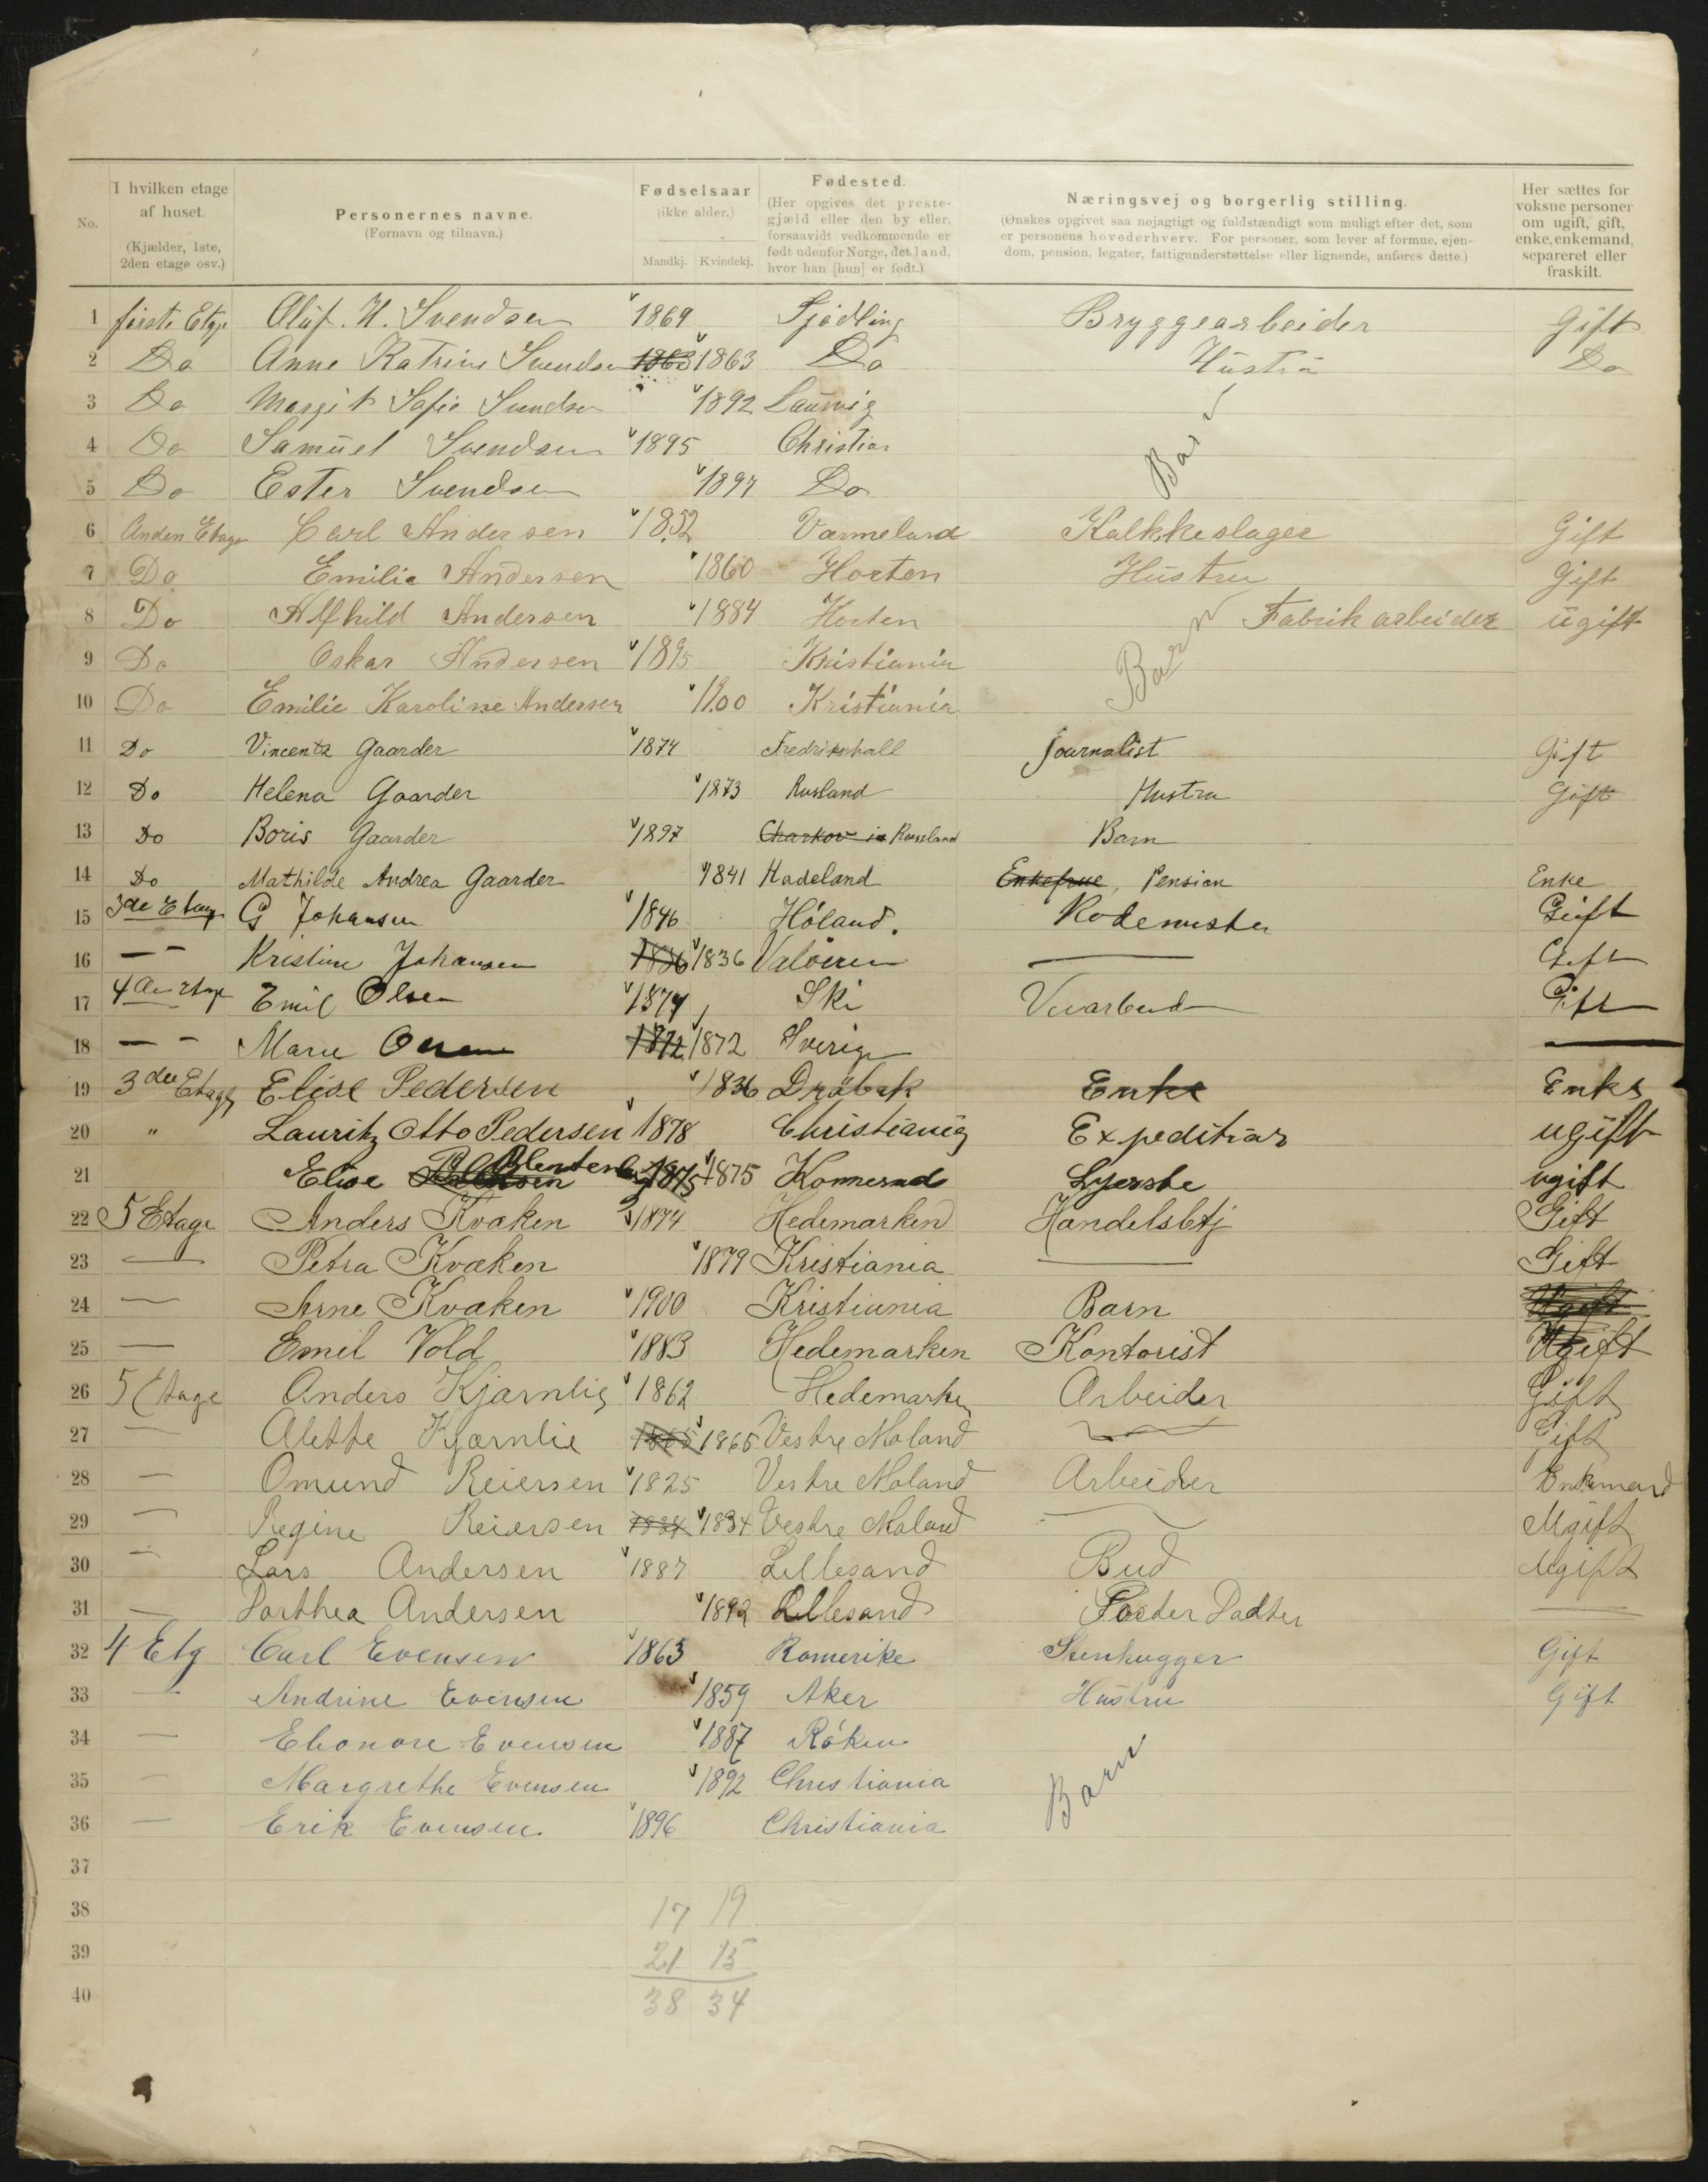 No.
I hvilken etage af huset. (Kjælder, 1ste, 2den etage osv.)
Personernes navne. (Fornavn og tilnavn.)
Fødselsaar (ikke alder.) Mandkj. Kvindekj.
Fødested. (Her opgives det prestegjæld eller den by eller, forsaavidt vedkommende er født udenfor Norge, det land, hvor han [hun] er født.)
Næringsvej og borgerlig stilling. (Ønskes opgivet saa nøjagtigt og fuldstændigt som muligt efter det, som er personens hovederhverv. For personer, som lever af formue, ejendom, pension, legater, fattigunderstøttelse eller lignende, anføres dette.)
Her sættes for voksne personer om ugift, gift, enke, enkemand, separeret eller fraskilt.
1 første Etge Oluf. H. Svendsen 1869 Fjødling Bryggearbeider Gift
2 Do Anne Katrine Svendsen 1863 1863 Do Hustru Do
3 Do Margit Sofie Svendsen 1892 Laurvig
4 Do Samuel Svendsen 1895 Christian Barn
5 Do Ester Svendsen 1897 Do
6 Anden Etage Carl Andersen 1852 Varmeland Kalkkeslager Gift
7 Do Emilie Andersen 1860 Horten Hustru Gift
8 Do Alfhild Andersen 1884 Horten Fabrik arbeider ugift
9 Do Oskar Andersen 1895 Kristiania Barn
10 Do Emilie Karoline Andersen 1900 Kristiania
11 Do Vincentz Gaarder 1874 Fredrikshall Journalist Gift
12 Do Helena Gaarder 1873 Rusland Hustru Gift
13 Do Boris Gaarder 1897 Charkov in Russland Barn
14 Do Mathilde Andrea Gaarder 1841 Hadeland Enkefrue, Pension Enke
15 3de Etage G Johansen 1846 Høland. Rodemester Gift
16 — - Kristine Johansen 1836 1836 Valøeren — Gift
17 4de Etage Emil Olsen 1874 Ski Gift
18 — - Marie Olsen 1872 1872 Sverige —
19 3die Etage Elise Pedersen 1836 Drøbak Enke Enke
20 " Lauritz Otto Pedersen 1878 Christiania Expeditiør ugift
21 Elise 1875 1875 Konnerud Syerske ugift
22 5 Etage Anders Kvæken 1874 Hedemarken Handelsbtj Gift
23 — Petra Kvæken 1879 Kristiania — Gift
24 — Arne Kvæken 1900 Kristiania Barn Ugift
25 — Emil Vold 1883 Hedemarken Kontorist Ugift
26 5 Etage Anders Kjærnlie 1862 Hedemarken Arbeider Gift
27 — Alette Kjærnlie 1865 1865 Vestre Moland — Gift
28 — Omund Reiersen 1825 Vestre Moland Arbeider Enkemand
29 — Regine Reiersen 1834 1834 Vestre Moland — Ugift
30 — Lars Andersen 1887 Lillesand Bud Ugift
31 — Dorthea Andersen 1892 Lillesand Foster Dadter —
32 4 Etg Carl Evensen 1863 Romerike Stenhugger Gift
33 — Andrine Evensen 1859 Aker Hustru Gift
34 — Elionore Evensen 1887 Røken
35 — Margrethe Evensen 1892 Christiania Barn
36 — Erik Evensen 1896 Christiania
37
38 17 19
39 21 15
40 38 34